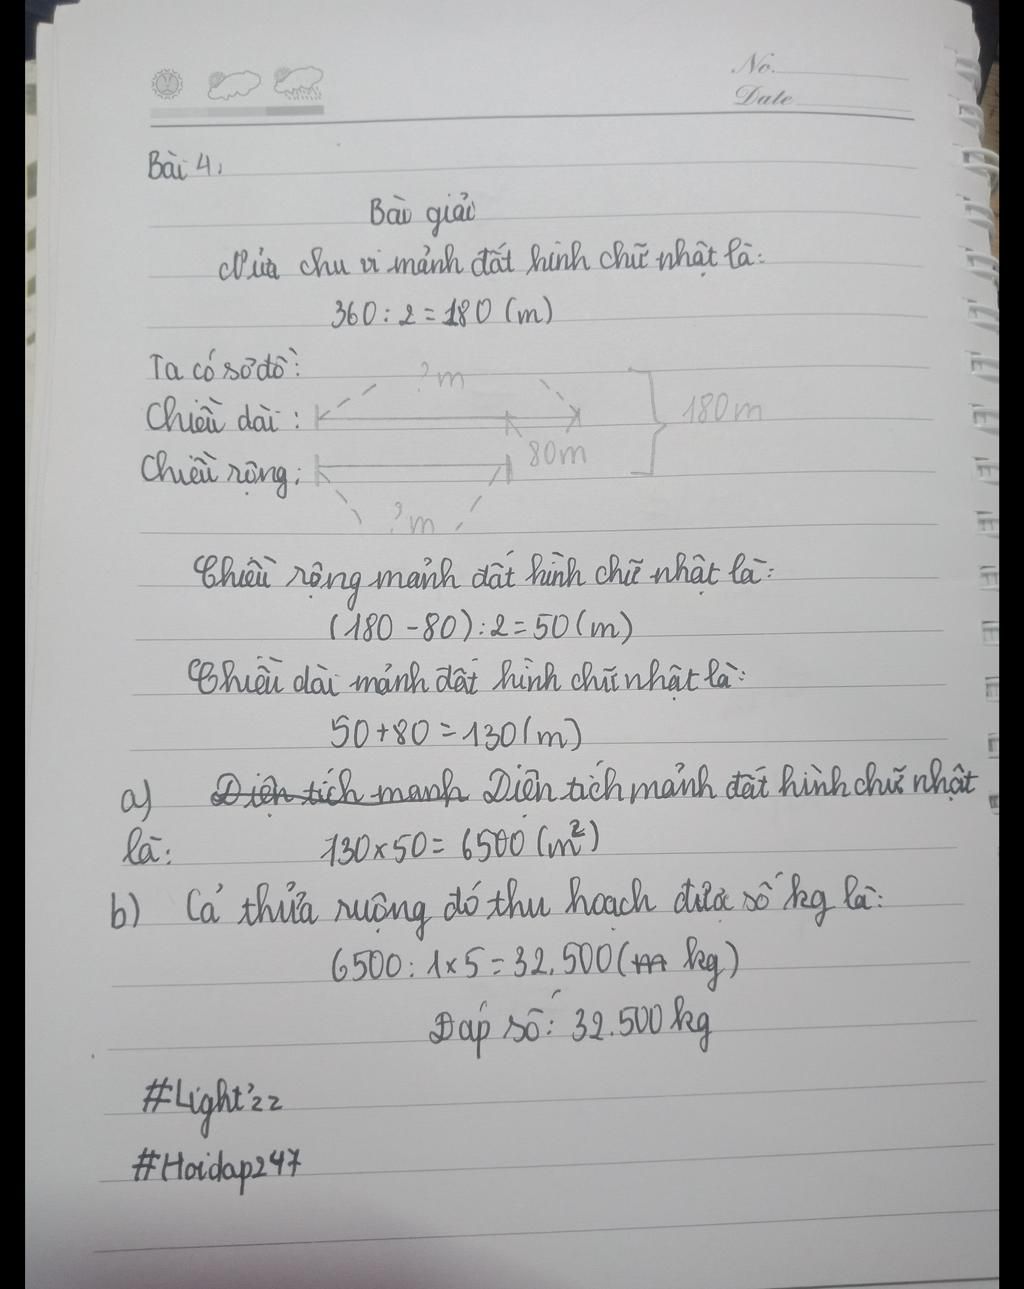 No.
Date
Bài 4,
Bài giải
Nửa chu vi mảnh đất hình chữ nhật là:
360 : 2 = 180 (m)
Ta có sơ đồ:
?m
Chiều dài:
180m
80m
Chiều rộng:
?m
Chiều rộng mảnh đất hình chữ nhật là:
(180 - 80) : 2 = 50 (m)
Chiều dài mảnh đất hình chữ nhật là:
50 + 80 = 130 (m)
a) Diện tích manh Diện tích mảnh đất hình chữ nhật
là: 130 x 50 = 6500 (m²)
b) Cả thửa ruộng đó thu hoạch được số kg là:
6500 : 1 x 5 = 32.500 (m kg)
Đáp số: 32.500 kg
#Light'22
#Hoidap247